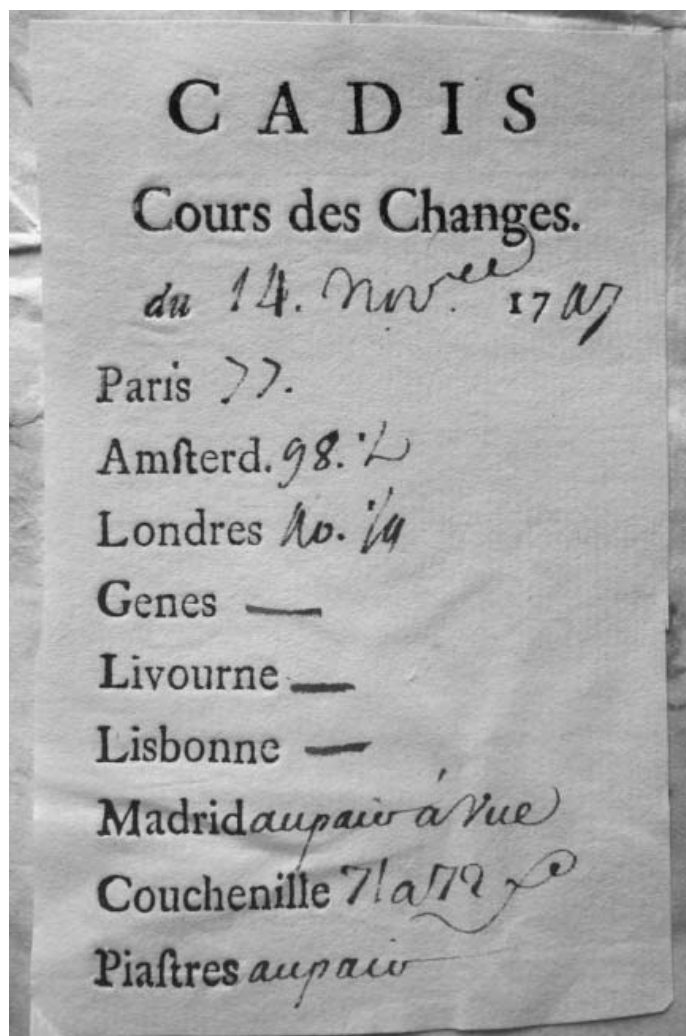 CADIS
Cours des Changes.
du 14. Nov.re 17
Paris 77.
Amſterd. 98. 1/2
Londres
Genes —
Livourne —
Lisbonne —
Madrid au pair à vue
Couchenille 71 a 72
Piaſtres au pair